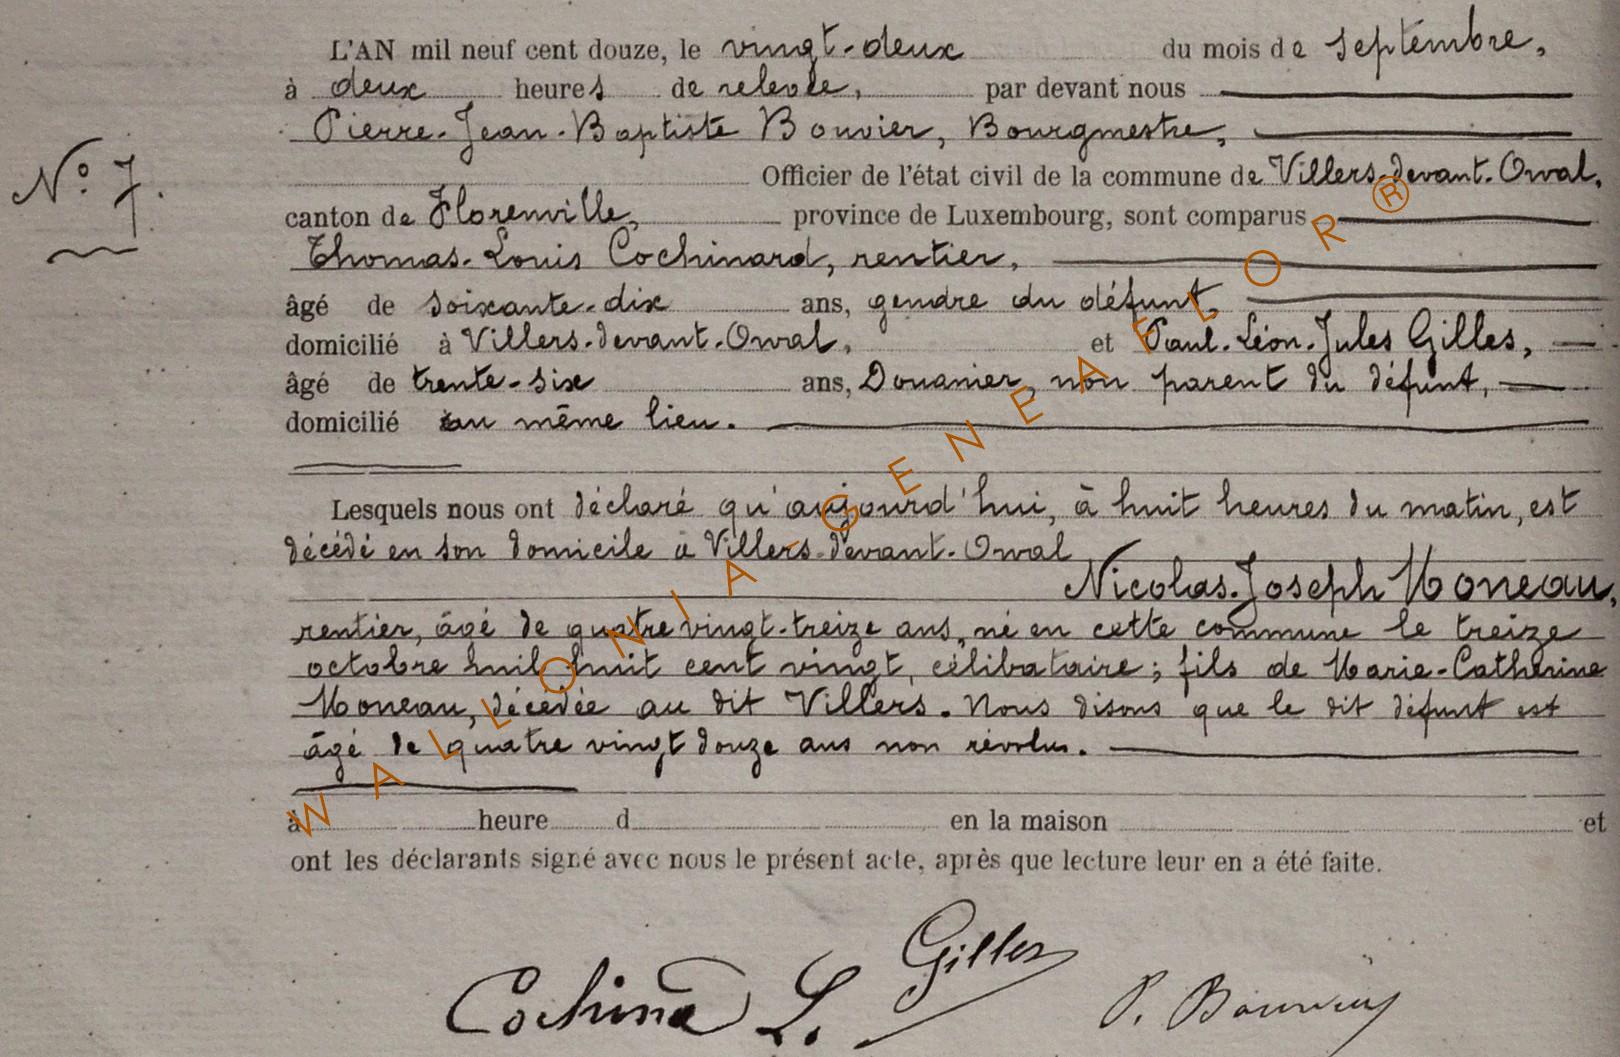 L'AN mil neuf cent douze, le vingt-deux du mois de septembre,
à deux heures de relevée, par devant nous
Pierre-Jean-Baptiste Bouvier, Bourgmestre,
N° 7.
Officier de l'état civil de la commune de Villers-devant-Orval,
canton de Florenville, province de Luxembourg, sont comparus
Thomas-Louis Cochinard, rentier,
âgé de soixante-dix ans, gendre du défunt,
domicilié à Villers-devant-Orval, et Paul-Léon-Jules Gilles,
âgé de trente-six ans, Douanier, non parent du défunt,
domicilié au même lieu.
Lesquels nous ont déclaré qu'aujourd'hui, à huit heures du matin, est
décédé en son domicile à Villers-devant-Orval
Nicolas-Joseph Moneau,
rentier, âgé de quatre vingt-treize ans, né en cette commune le treize
octobre huit cent vingt, célibataire; fils de Marie-Catherine
Moneau, décédée au dit Villers. Nous disons que le dit défunt est
âgé de quatre vingt douze ans non révolus.
à heure d en la maison et
ont les déclarants signé avec nous le présent acte, après que lecture leur en a été faite.
Gilles
L.
P. Bouvier
WALLONIA-GENEAFLOR®